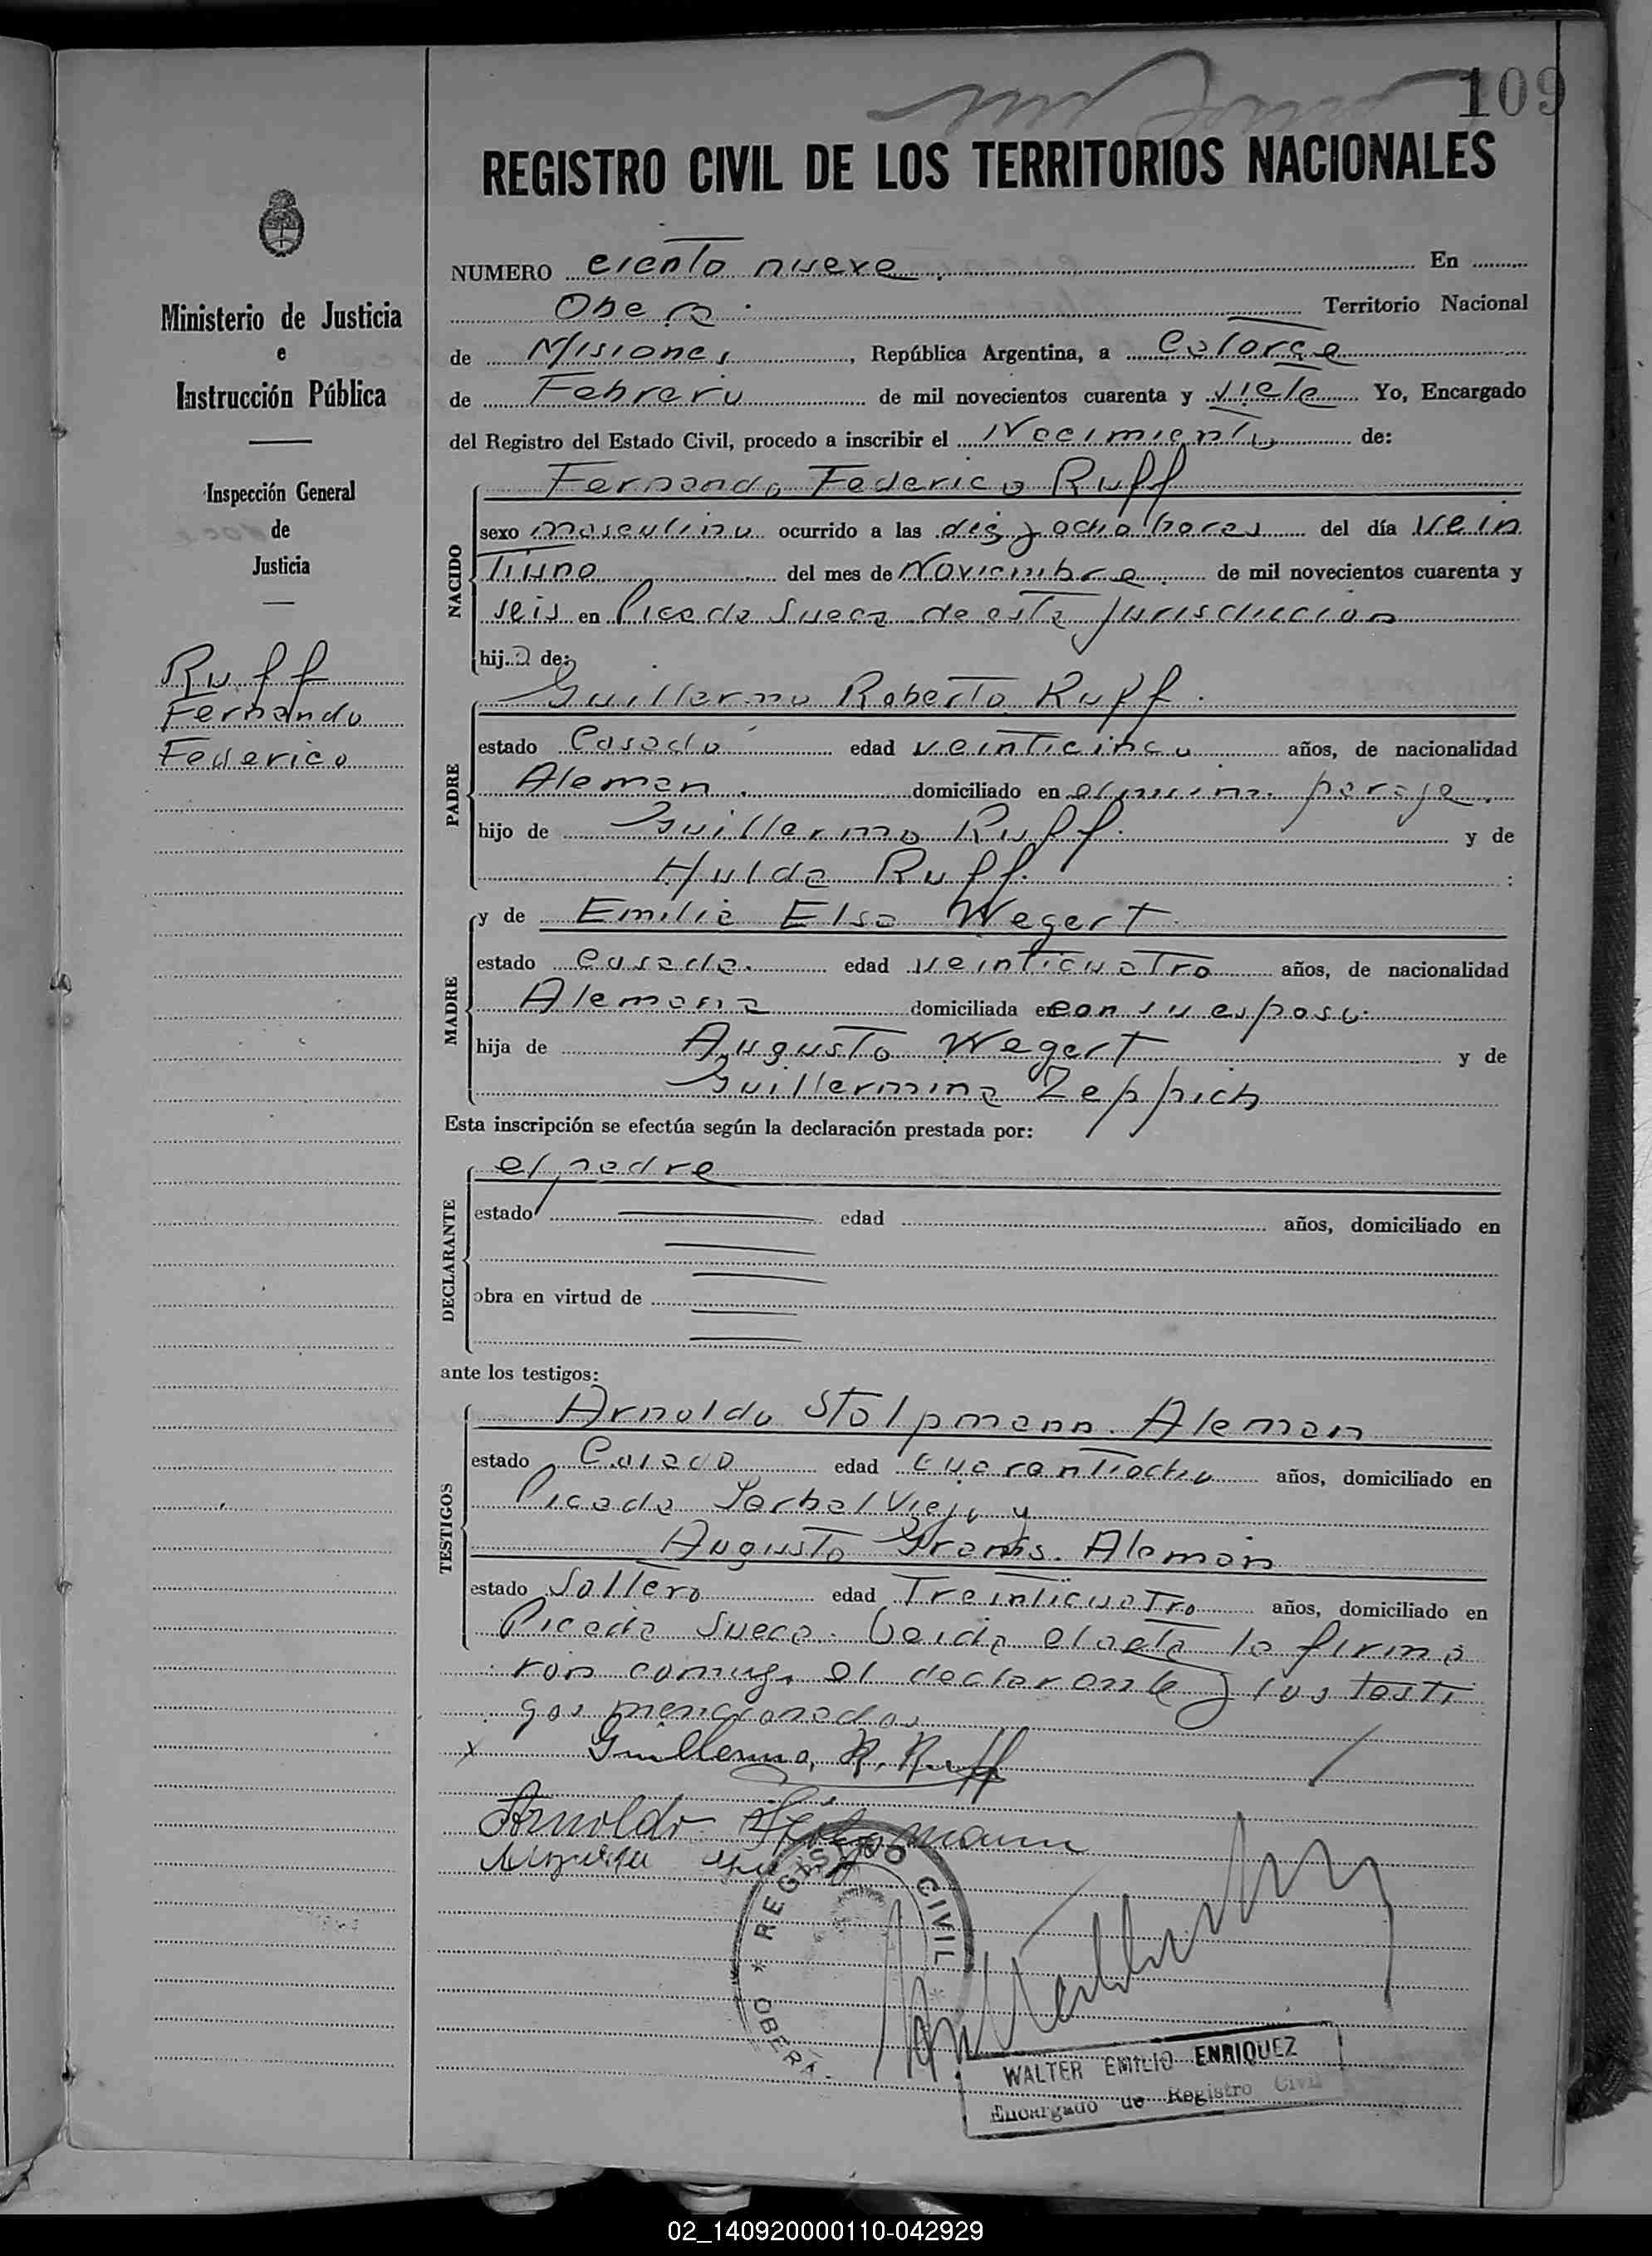 109
REGISTRO CIVIL DE LOS TERRITORIOS NACIONALES
Ministerio de Justicia
e
Instrucción Pública
Inspección General
de
Justicia
Ruff
Fernando
Federico
NUMERO ciento nueve. En
Obera. Territorio Nacional
de Misiones, República Argentina, a Catorce
de Febrero de mil novecientos cuarenta y siete Yo, Encargado
del Registro del Estado Civil, procedo a inscribir el Nacimiento de:
NACIDO
Fernando Federico Ruff
sexo masculino ocurrido a las diez y ocho horas del día vein
tiuno del mes de Noviembre de mil novecientos cuarenta y
seis en Picada Sueca de esta jurisdiccion
hijo de:
PADRE
Guillermo Roberto Ruff.
estado Casado edad veinticinco años, de nacionalidad
Aleman. domiciliado en el mismo paraje.
hijo de Guillermo Ruff. y de
Hulda Ruff.
MADRE
y de Emilia Elsa Wegert
estado Casada. edad veinticuatro años, de nacionalidad
Alemana domiciliada en con su esposo.
hija de Augusto Wegert y de
Guillermina Zeppich
Esta inscripción se efectúa según la declaración prestada por:
DECLARANTE
el padre
estado edad años, domiciliado en
obra en virtud de
ante los testigos:
TESTIGOS
Arnoldo Stolpmann. Aleman
estado Casado edad cuarentiocho años, domiciliado en
Picada Yerbal Viejo y
Augusto Aleman
estado Soltero edad Treinticuatro años, domiciliado en
Picada Sueca. Leida el acta la firma
ron conmigo el declarante y los testi
gos mencionados
x Guillermo, R. Ruff
Arnoldo Stolpmann
REGISTRO CIVIL
* OBERÁ *
WALTER EMILIO ENRIQUEZ
Encargado de Registro Civil
02_140920000110-042929